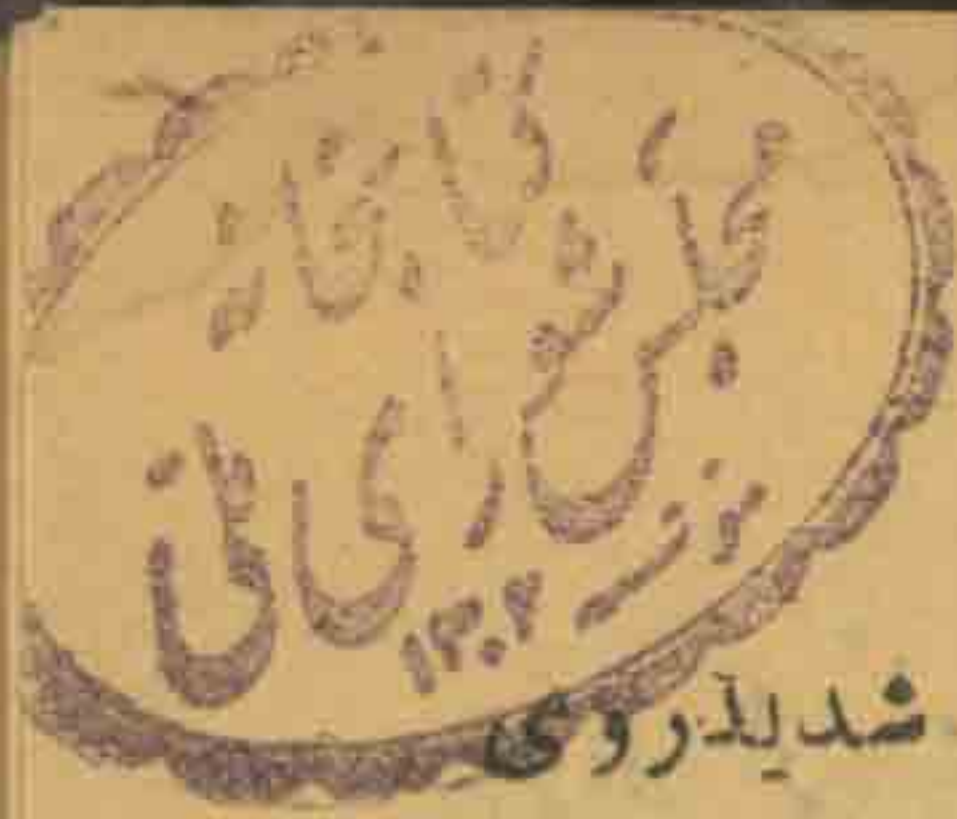 کتابخانه
مجلس شورای ملی
۱۳۰۲
شدید روی